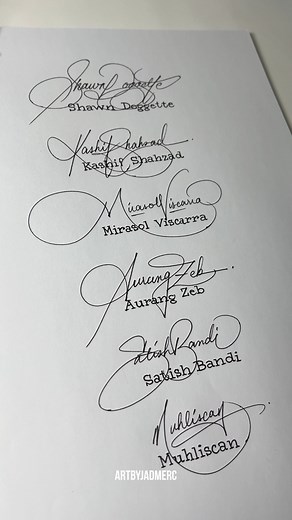 Shawn Doggette
Shawn Doggette
Kashif Shahzad
Kashif Shahzad
Mirasol Viscarra
Mirasol Viscarra
Aurang Zeb
Aurang Zeb
Satish Bandi
Satish Bandi
Muhliscan
Muhliscan
ARTBYJADMERC